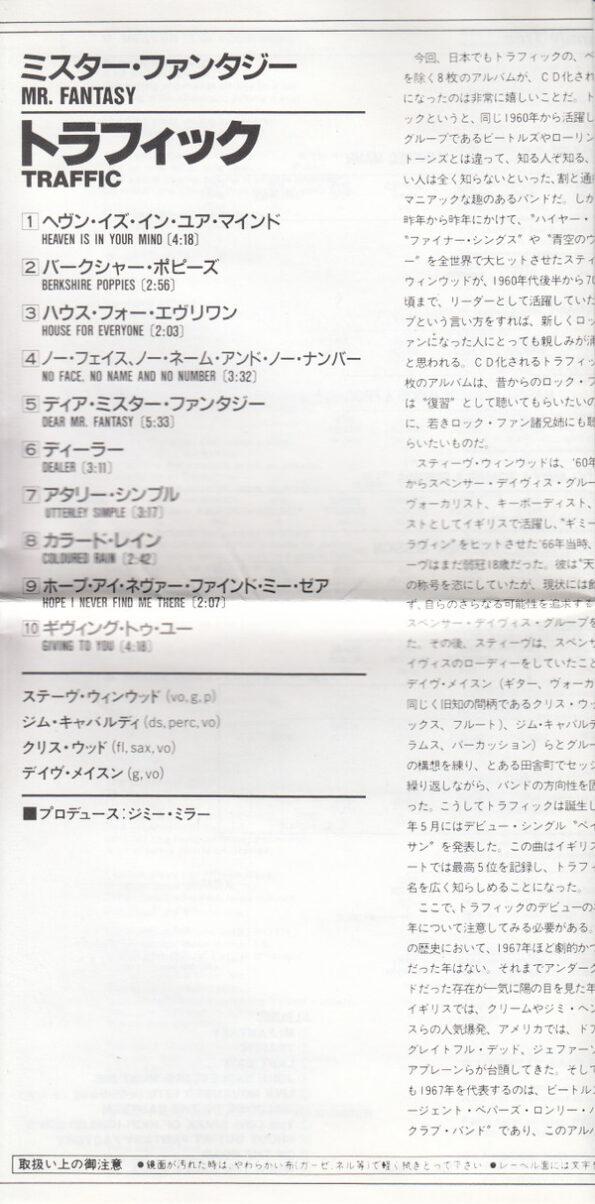 ミスター・ファンタジー
MR. FANTASY
トラフィック
TRAFFIC
1 ヘヴン・イズ・イン・ユア・マインド
HEAVEN IS IN YOUR MIND〔4:18〕
2 バークシャー・ポピーズ
BERKSHIRE POPPIES〔2:56〕
3 ハウス・フォー・エヴリワン
HOUSE FOR EVERYONE〔2:03〕
4 ノー・フェイス、ノー・ネーム・アンド・ノー・ナンバー
NO FACE, NO NAME AND NO NUMBER〔3:32〕
5 ディア・ミスター・ファンタジー
DEAR MR. FANTASY〔5:33〕
6 ディーラー
DEALER〔3:11〕
7 アタリー・シンプル
UTTERLEY SIMPLE〔3:17〕
8 カラード・レイン
COLOURED RAIN〔2:42〕
9 ホープ・アイ・ネヴァー・ファインド・ミー・ゼア
HOPE I NEVER FIND ME THERE〔2:07〕
10 ギヴィング・トゥ・ユー
GIVING TO YOU〔4:18〕
ステーヴ・ウィンウッド(vo, g, p)
ジム・キャパルディ(ds, perc, vo)
クリス・ウッド(fl, sax, vo)
デイヴ・メイスン(g, vo)
■プロデュース:ジミー・ミラー
今回、日本でもトラフィックの、ベ
を除く8枚のアルバムが、CD化され
になったのは非常に嬉しいことだ。ト
ックというと、同じ1960年から活躍し
グループであるビートルズやローリン
トーンズとは違って、知る人ぞ知る、
い人は全く知らないといった、割と通
マニアックな趣のあるバンドだ。しか
昨年から昨年にかけて、"ハイヤー・
"ファイナー・シングス"や"青空のヴ
ー"を全世界で大ヒットさせたスティ
ウィンウッドが、1960年代後半から70
頃まで、リーダーとして活躍していた
プという言い方をすれば、新しくロッ
ァンになった人にとっても親しみが湧
と思われる。CD化されるトラフィッ
枚のアルバムは、昔からのロック・フ
は"復習"として聴いてもらいたいの
に、若きロック・ファン諸兄姉にも聴
らいたいものだ。
スティーヴ・ウィンウッドは、'60年
からスペンサー・デイヴィス・グルー
ヴォーカリスト、キーボーディスト、
ストとしてイギリスで活躍し、"ギミー
ラヴィン"をヒットさせた'66年当時、
ーヴはまだ弱冠18歳だった。彼は"天
の称号を恣にしていたが、現状には飽
ず、自らのさらなる可能性を追求する
スペンサー・デイヴィス・グループを
た。その後、スティーヴは、スペンサ
イヴィスのローディーをしていたこと
デイヴ・メイスン(ギター、ヴォーカ
同じく旧知の間柄であるクリス・ウッ
ックス、フルート)、ジム・キャパルデ
ラムス、パーカッション)らとグルー
の構想を練り、とある田舎町でセッシ
繰り返しながら、バンドの方向性を固
った。こうしてトラフィックは誕生し
年5月にはデビュー・シングル"ペイ
サン"を発表した。この曲はイギリス
ートでは最高5位を記録し、トラフィ
名を広く知らしめることになった。
ここで、トラフィックのデビューの
年について注意してみる必要がある。
の歴史において、1967年ほど劇的かつ
だった年はない。それまでアンダーグ
ドだった存在が一気に陽の目を見た年
イギリスでは、クリームやジミ・ヘン
スらの人気爆発、アメリカでは、ドア
グレイトフル・デッド、ジェファーソ
アプレーンらが台頭してきた。そして
も1967年を代表するのは、ビートルズ
ージェント・ペパーズ・ロンリー・ハ
クラブ・バンド"であり、このアルバ
取扱い上の御注意 ●鏡面が汚れた時は、やわらかい布(ガーゼ、ネル等)で軽く拭きとって下さい ●レーベル面には文字